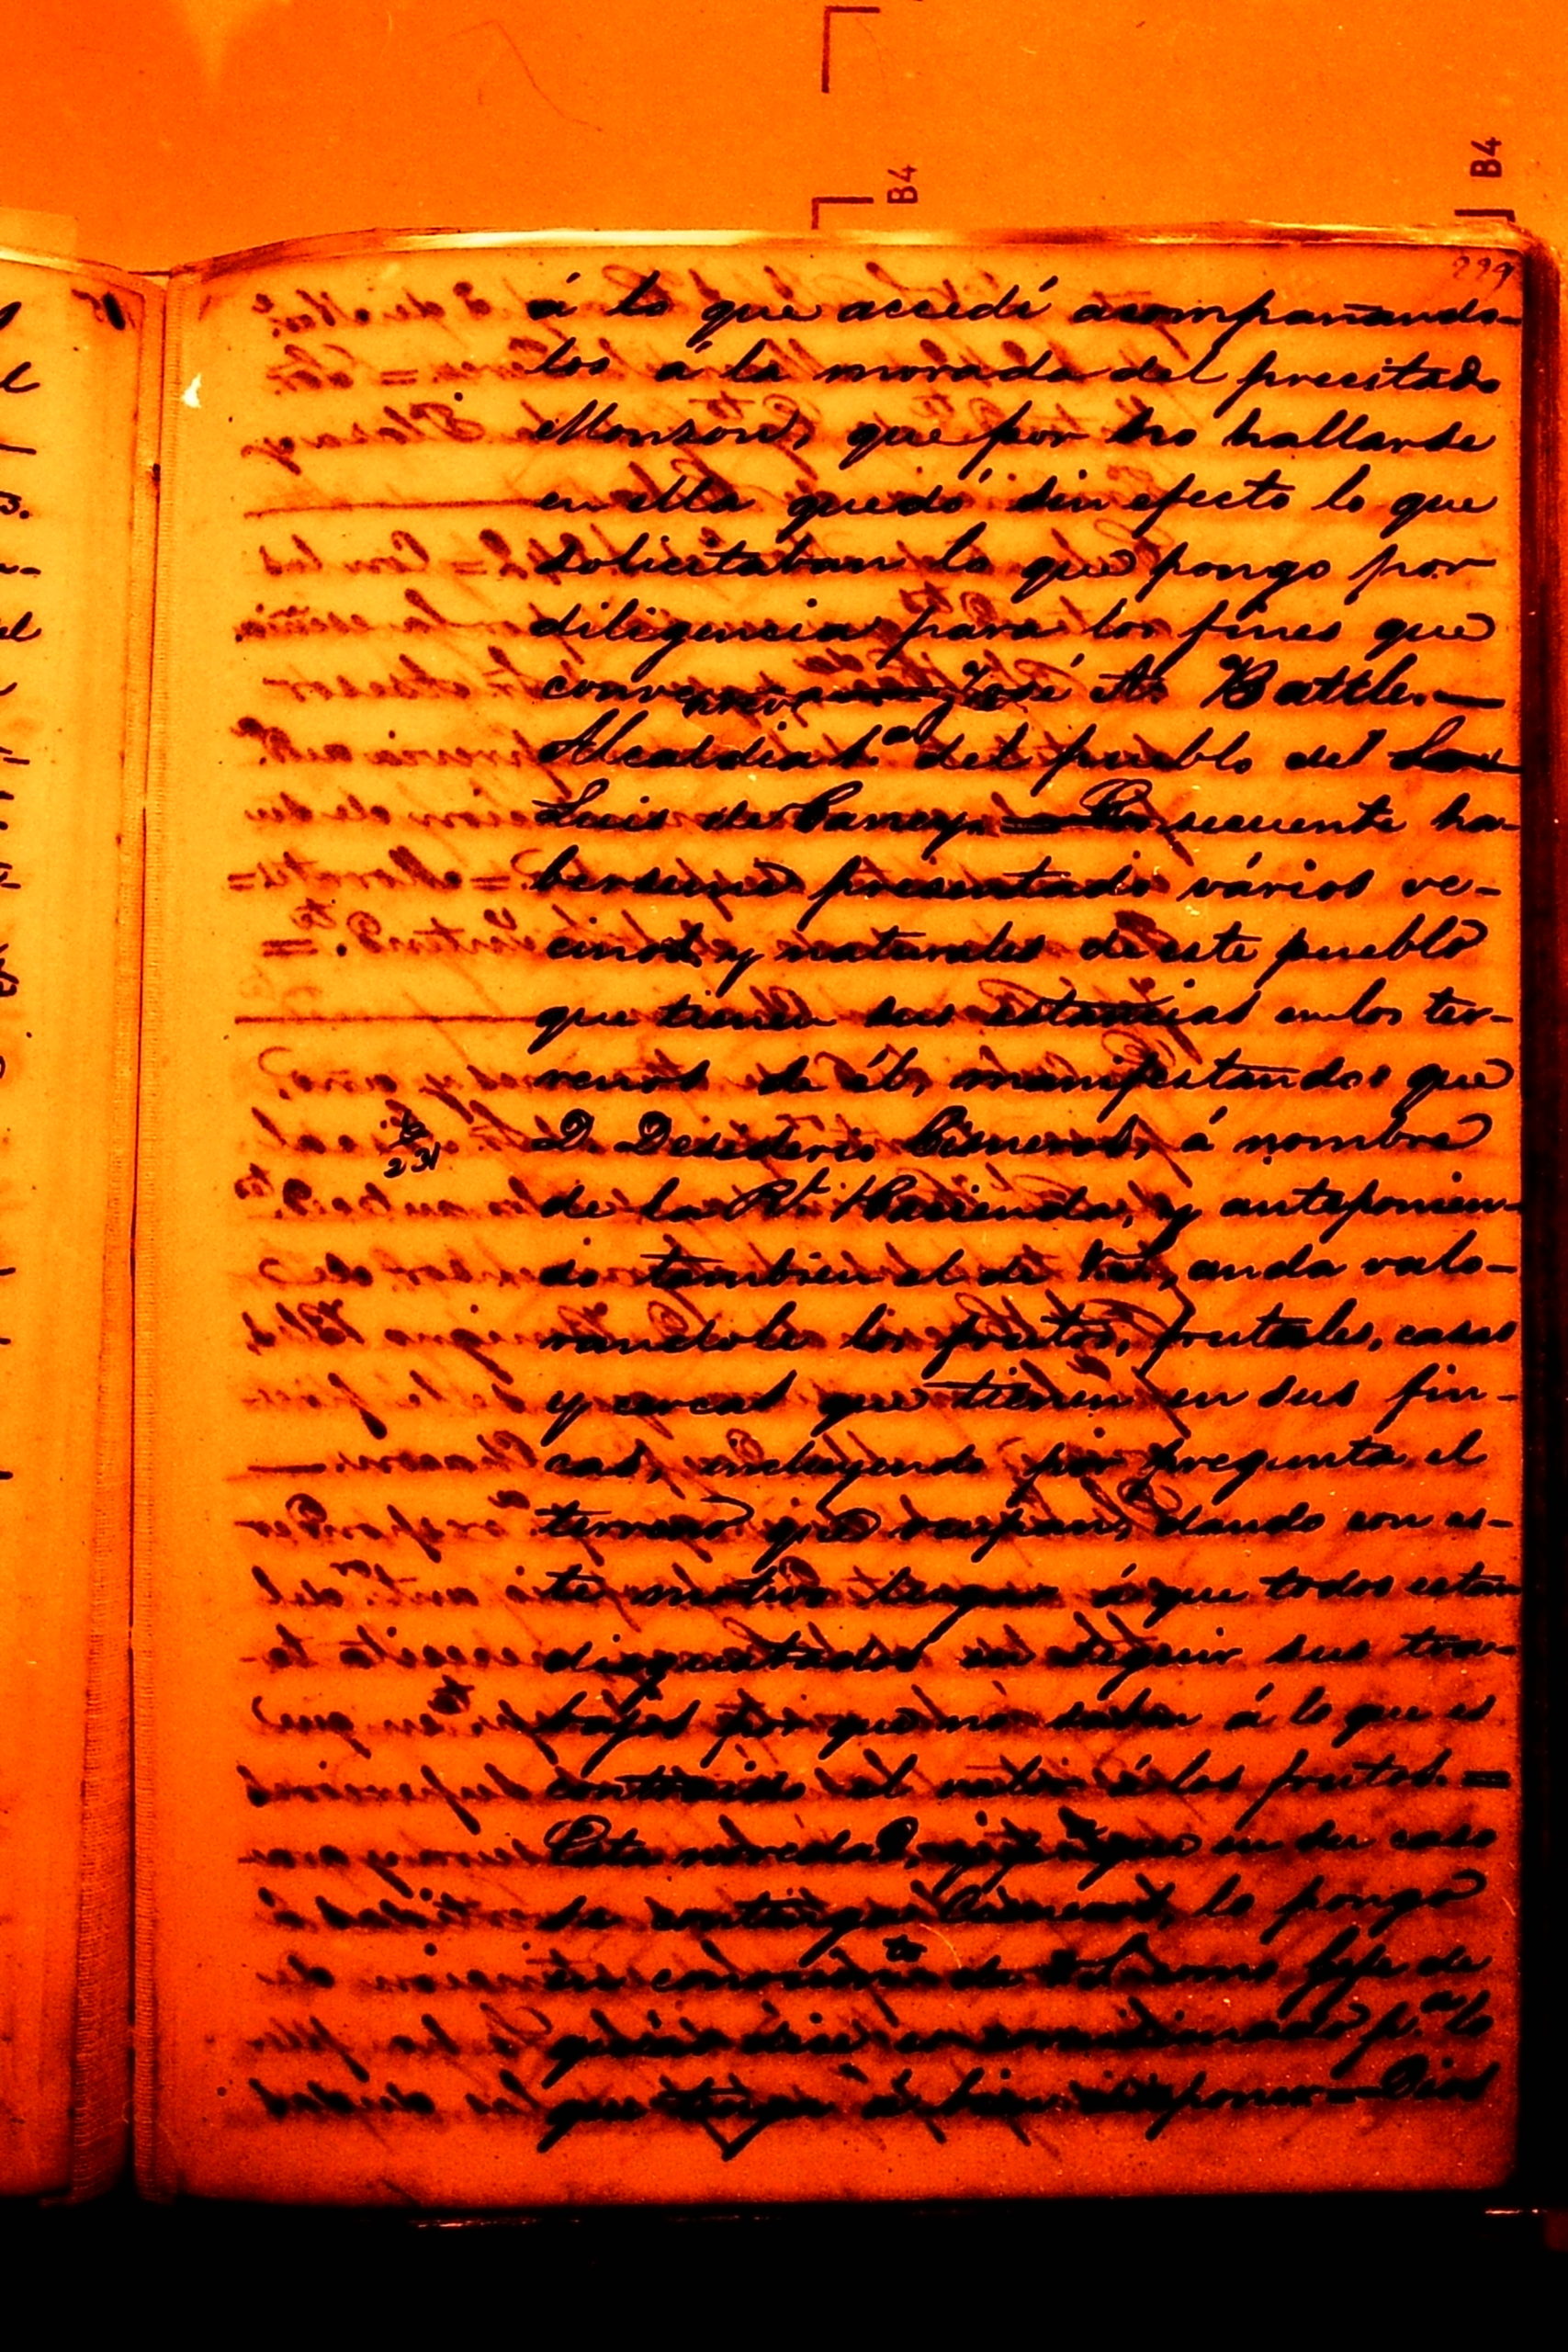 B4
B4
229
á lo que accedí acompañando-
los á la morada del precitado
Monzon, que por no hallarse
en ella quedó sin efecto lo que
solicitaban lo que pongo por
diligencia para los fines que
convenga José A. Batlle.—
Alcaldia del pueblo del San
Luis de Caney. — ha-
berseme presentado várlos ve-
cinos y naturales de este pueblo
que tienen sus estancias en los ter-
renos de él, manifestandos que
D. Desiderio Cisneros, á nombre
de la Rl. Hacienda, y anteponien-
do tambien el de anda valo-
randoles los frutos, frutales, casas
y cercas que tienen en sus fin-
cas, incluyendo por pregunta el
terreno que ocupan, dando con es-
te motivo á que todos estan
disgustados en seguir sus tra-
bajos por que nó saben á lo que es
contraido el valor á los frutos. =
Esta novedad, que en su caso
Cisneros, lo pongo
en conocimto de Gefe de
pa. lo
que tenga á bien disponer — Dios
231